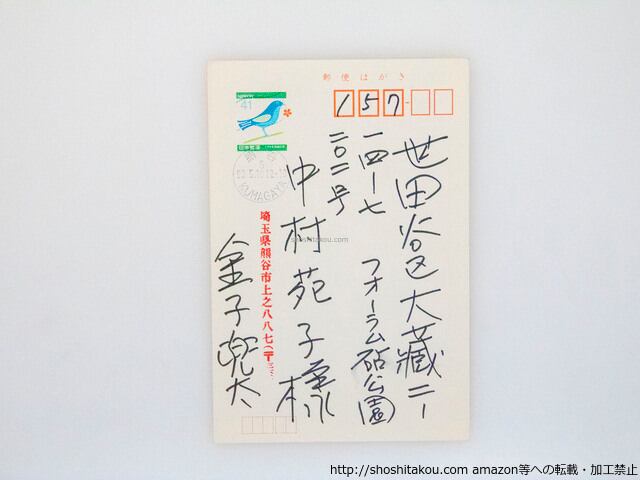 郵便はがき
157
世田谷区大蔵二ー
一四ー七
フオーラム砧公園
二〇二号
中村苑子様
埼玉県熊谷市上之八八七(〒三三
金子兜太
41
日本郵便
KUMAGAYA
shoshitakou.com
http://shoshitakou.com amazon等への転載・加工禁止